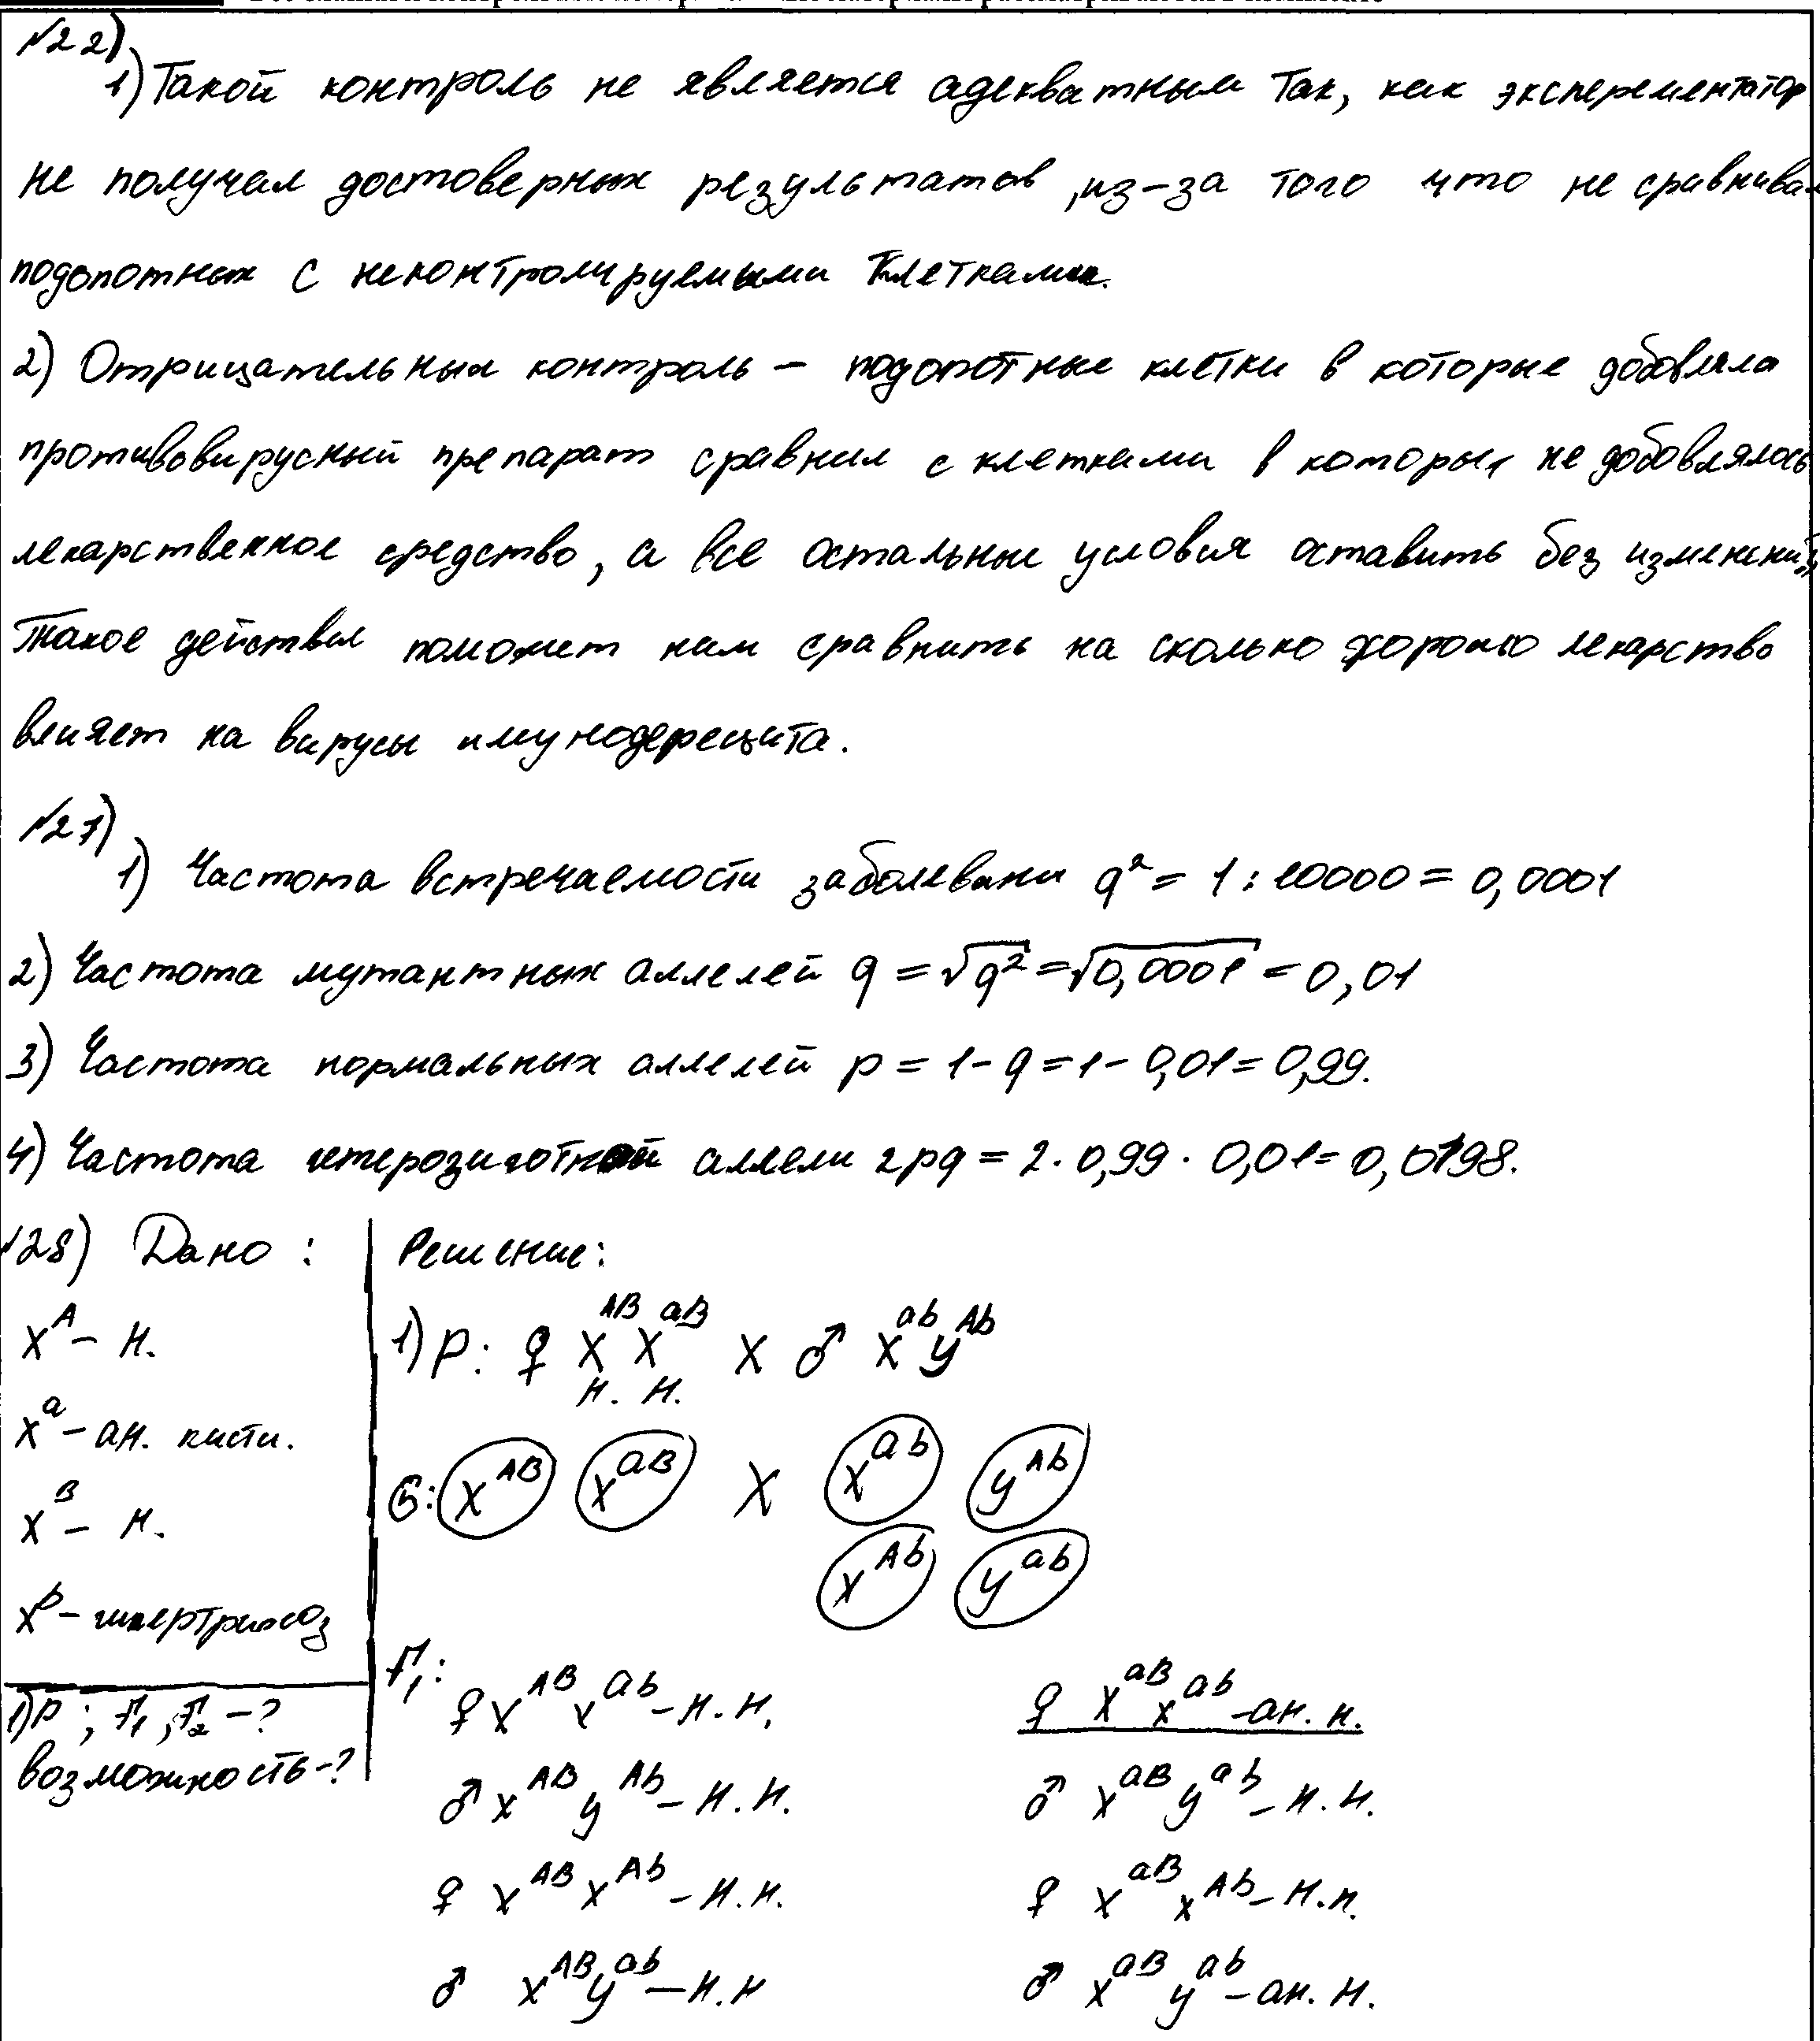 №22)
1) Такой контроль не является адекватным Так, как эксперементатор
не получал достоверных результатов, из-за того что не сравнивал
подопотных с неконтролируемыми клетками.
2) Отрицательных контроль – подопотные клетки в которые добовляла
противовирусный препарат сравнил с клетками в которых не добовлялось
лекарственное средство, а все остальные условия оставить без изменений,
Такое действия поможет нам сравнить на сколько хорошо лекарство
влияет на вирусы имунодефецита.
№27)
1) Частота встречаемости заболевани q² = 1 : 10000 = 0,0001
2) Частота мутантных аллелей q = √q² = √0,0001 = 0,01
3) Частота нормальных аллелей p = 1 - q = 1 - 0,01 = 0,99.
4) Частота гетерозиготной аллели 2pq = 2 · 0,99 · 0,01 = 0,0198.
№28) Дано :
X^A – н.
X^a – ан. кисти.
X^B – н.
X^b – гипертриохоз
1) P ; F₁ ; F₂ – ?
возможность - ?
Решение:
1) P: ♀ X^AB X^aB X ♂ X^ab y^Ab
н. н.
G: X^AB X^aB X X^ab y^Ab
X^Ab y^ab
F₁:
♀ X^AB X^ab – н. н. ♀ X^aB X^ab – ан. н.
♂ X^AB y^Ab – н. н. ♂ X^aB y^ab – н. н.
♀ X^AB X^Ab – н. н. ♀ X^aB X^Ab – н. н.
♂ X^AB y^ab – н. н ♂ X^aB y^ab – ан. н.